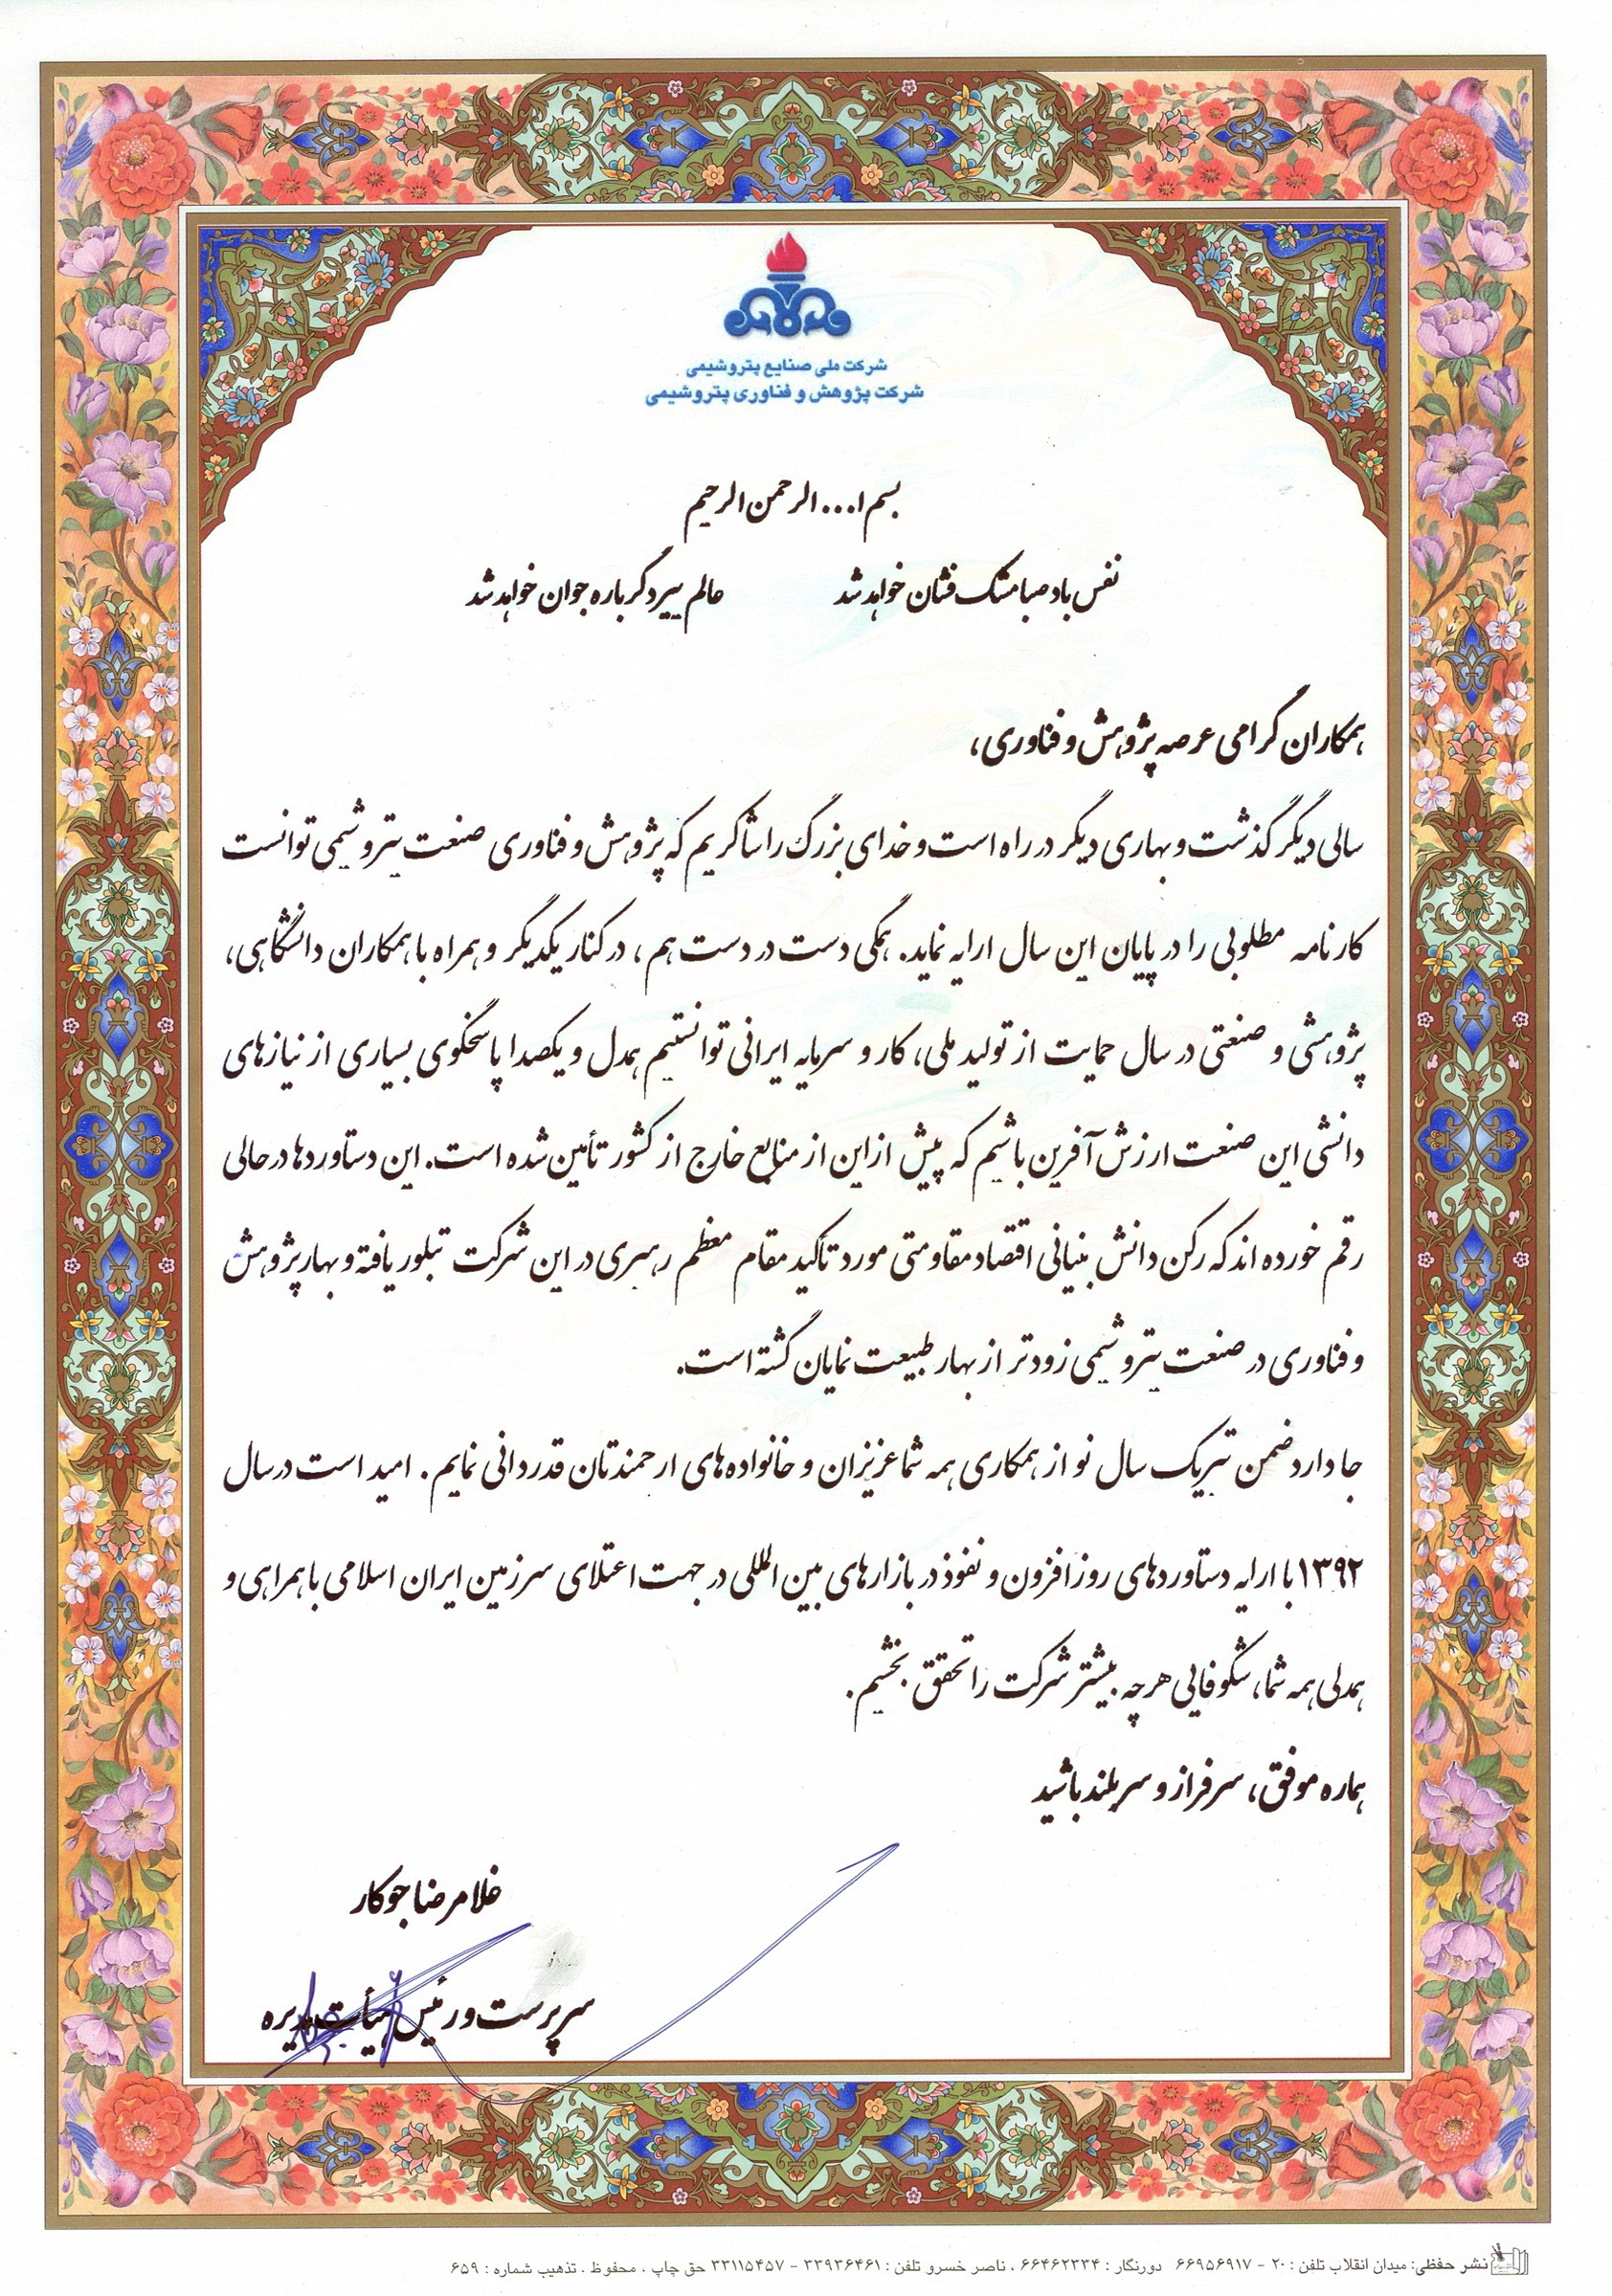 شرکت ملی صنایع پتروشیمی
شرکت پژوهش و فناوری پتروشیمی
بسم ا... الرحمن الرحیم
نفس باد صبا مشک فشان خواهد شد عالم پیر دگرباره جوان خواهد شد
همکاران گرامی عرصه پژوهش و فناوری،
سالی دیگر گذشت و بهاری دیگر در راه است و خدای بزرگ را شاکریم که پژوهش و فناوری صنعت پتروشیمی توانست
کارنامه مطلوبی را در پایان این سال ارایه نماید. همگی دست در دست هم، در کنار یکدیگر و همراه با همکاران دانشگاهی،
پژوهشی و صنعتی در سال حمایت از تولید ملی، کار و سرمایه ایرانی توانستیم همدل و یکصدا پاسخگوی بسیاری از نیازهای
دانشی این صنعت ارزش آفرین باشیم که پیش از این از منابع خارج از کشور تأمین شده است. این دستاوردها در حالی
رقم خورده اند که رکن دانش بنیانی اقتصاد مقاومتی مورد تاکید مقام معظم رهبری در این شرکت تبلور یافته و بهار پژوهش
و فناوری در صنعت پتروشیمی زودتر از بهار طبیعت نمایان گشته است.
جا دارد ضمن تبریک سال نو از همکاری همه شما عزیزان و خانواده های ارجمندتان قدردانی نمایم. امید است در سال
۱۳۹۲ با ارایه دستاوردهای روزافزون و نفوذ در بازارهای بین المللی در جهت اعتلای سرزمین ایران اسلامی با همراهی و
همدلی همه شما، شکوفایی هرچه بیشتر شرکت را تحقق بخشیم.
هماره موفق، سرفراز و سربلند باشید
غلامرضا جوکار
سرپرست و رئیس هیأت مدیره
نشر حفظی: میدان انقلاب تلفن : ۲۰ - ۶۶۹۵۶۹۱۷ دورنگار : ۶۶۴۶۲۳۳۴ ، ناصر خسرو تلفن : ۳۳۹۳۶۴۶۱ - ۳۳۱۱۵۴۵۷ حق چاپ . محفوظ . تذهیب شماره : ۶۵۹